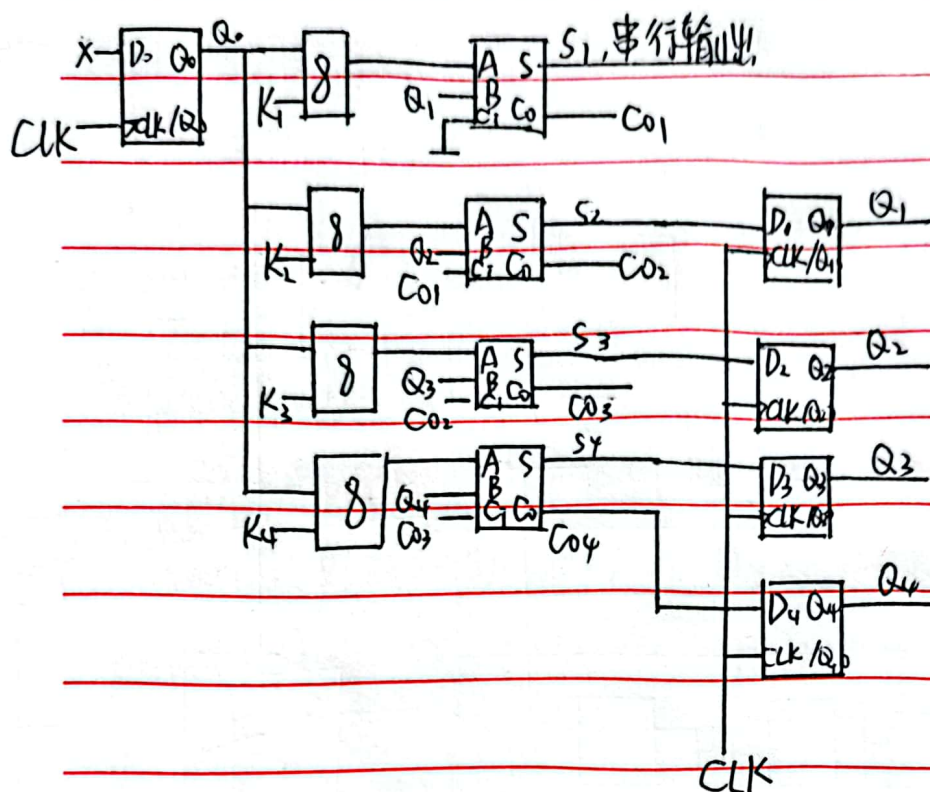 X D₀ Q₀ Q₀
CLK CLK/Q₀
K₁ 8
Q₁ A S S₁,串行输出
B
Cᵢ C₀ C01
K₂ 8
Q₂ A S S2
B
C01 Cᵢ C₀ C02
D₁ Q₁
CLK/Q₁
K₃ 8
Q₃ A S S3
B
C02 Cᵢ C₀ C03
D₂ Q₂ Q₂
CLK/Q₂
K₄ 8
Q₄ A S S4
B
C03 Cᵢ C₀ C04
D3 Q3 Q3
CLK/Q₃
D4 Q4 Q4
CLK/Q₄
CLK